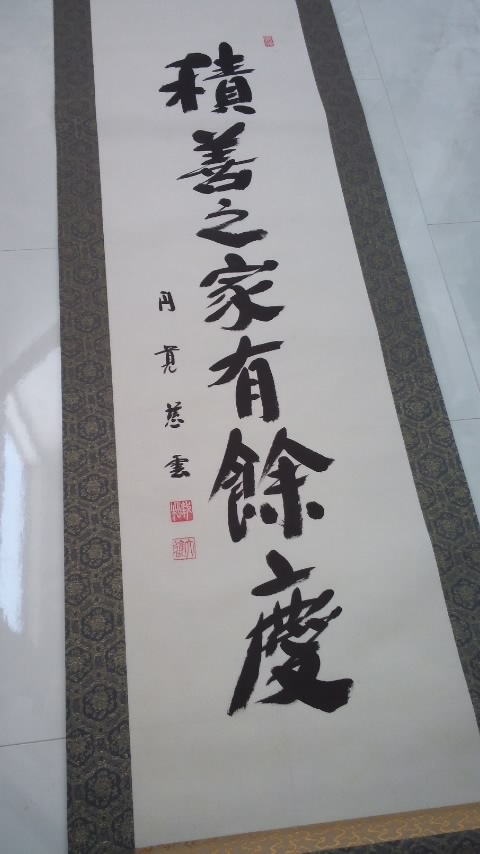 積善之家有餘慶
円覚慈雲